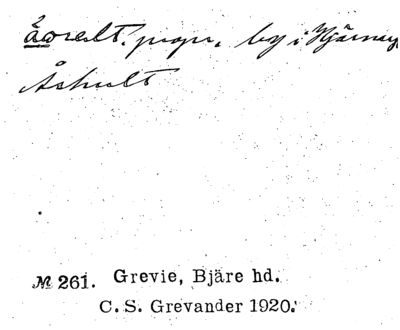 propr. by i
Åshult
№ 261. Grevie, Bjäre hd.
C. S. Grevander 1920.